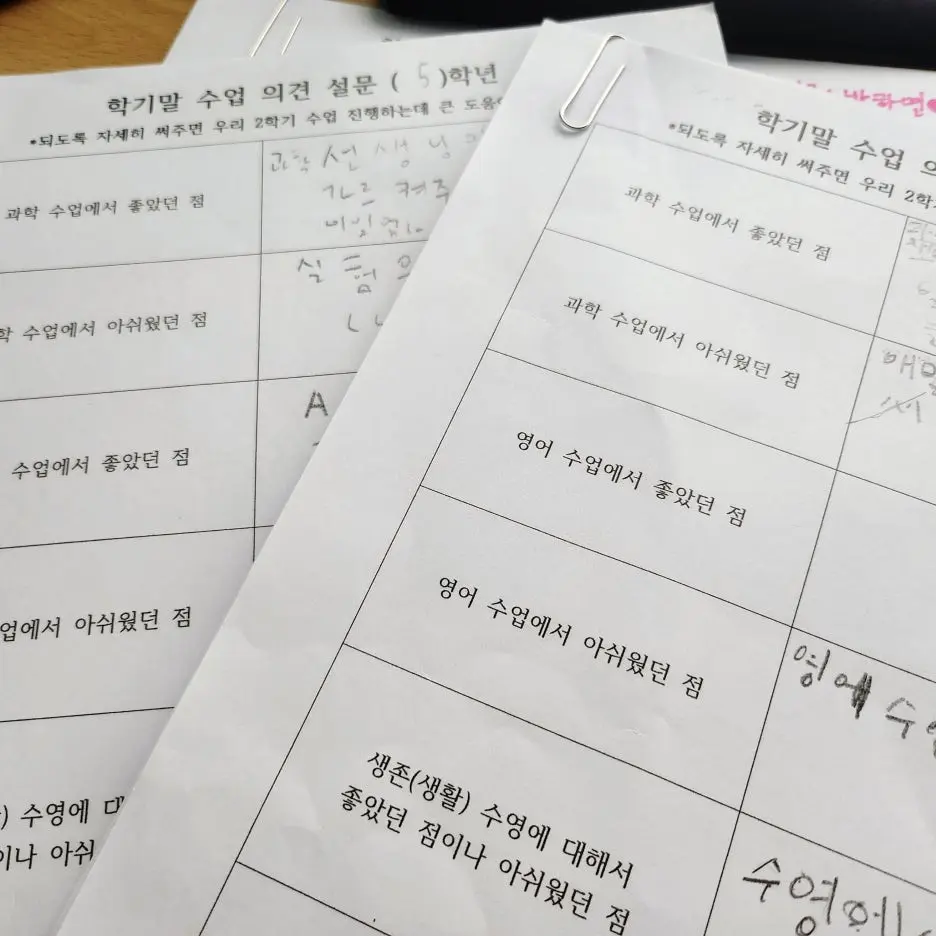 학기말 수업 의견 설문 ( 5 )학년
*되도록 자세히 써주면 우리 2학기 수업 진행하는데 큰 도움
과학 수업에서 좋았던 점
과학 선생님
가르켜주
학 수업에서 아쉬웠던 점
실험
수업에서 좋았던 점
A
업에서 아쉬웠던 점
) 수영에 대
이나 아쉬
학기말 수업 의
*되도록 자세히 써주면 우리 2학
과학 수업에서 좋았던 점
과학 수업에서 아쉬웠던 점
영어 수업에서 좋았던 점
영어 수업에서 아쉬웠던 점
생존(생활) 수영에 대해서
좋았던 점이나 아쉬웠던 점
수영에